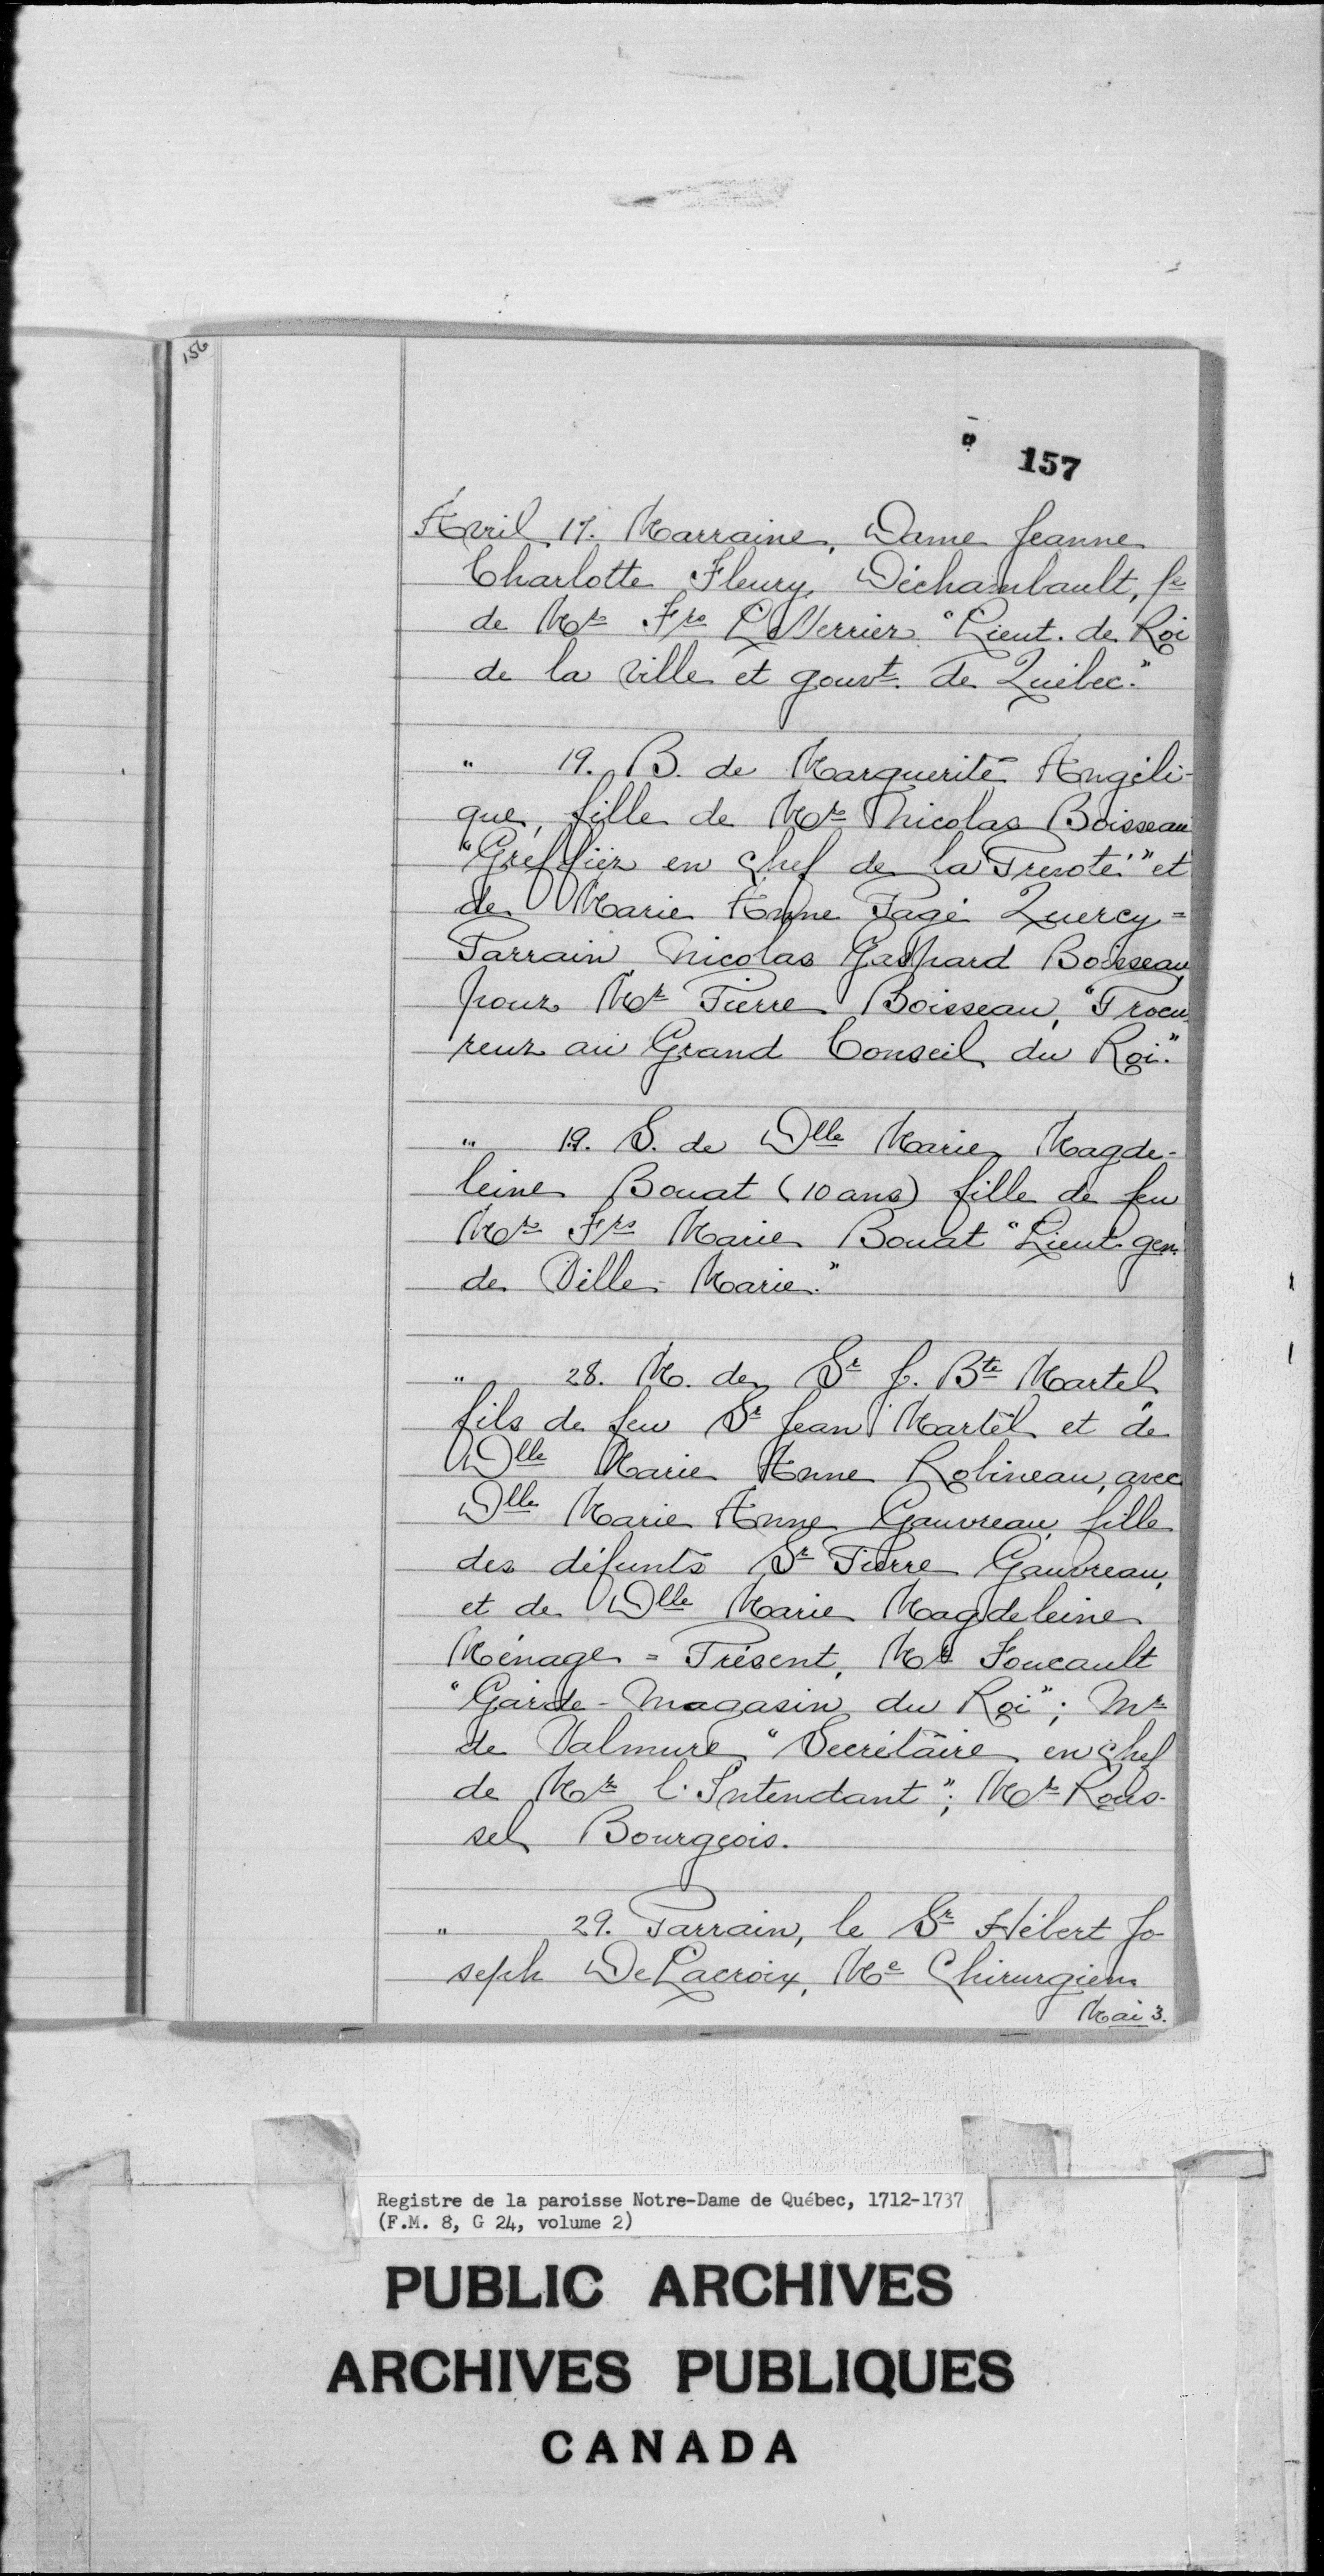 156
157
Avril 17. Marraine, Dame Jeanne
Charlotte Fleury, Déchambault, fe
de Mr Frs LeVerrier "Lieut. de Roi
de la ville et gouvt. de Québec."
" 19. B. de Marguerite Angéli-
que, fille de Mr Nicolas Boisseau
"Greffier en chef de la Prevoté" et
de Marie Anne Pagé Quercy =
Parrain Nicolas Gaspard Boisseau,
pour Mr Pierre Boisseau, "Procu-
reur au Grand Conseil du Roi."
" 19. S. de Dlle Marie Magde-
leine Bouat (10 ans) fille de feu
Mr Frs Marie Bouat "Lieut-gen.
de Ville-Marie."
" 28. M. de Sr J. Bte Martel
fils de feu Sr Jean Martel et de
Dlle Marie Anne Robineau, avec
Dlle Marie Anne Gauvreau, fille
des défunts Sr Pierre Gauvreau,
et de Dlle Marie Magdeleine
Ménage = Présent, Mr Foucault
"Garde-magasin du Roi"; Mr
de Valmure "Secrétaire en chef
de Mr l'Intendant"; Mr Rous-
sel Bourgeois.
" 29. Parrain, le Sr Hébert Jo-
seph DeLacroix, Me Chirurgien
Mai 3.
Registre de la paroisse Notre-Dame de Québec, 1712-1737
(F.M. 8, G 24, volume 2)
PUBLIC ARCHIVES
ARCHIVES PUBLIQUES
CANADA